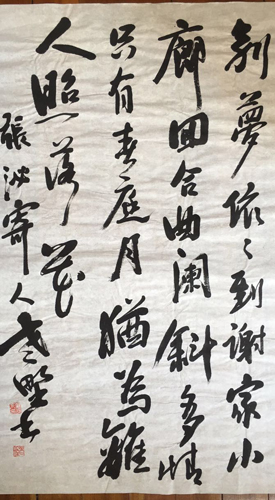 別夢依々到謝家小
廊回合曲闌斜多情
只有春庭月猶為離
人照落花
張泌寄人